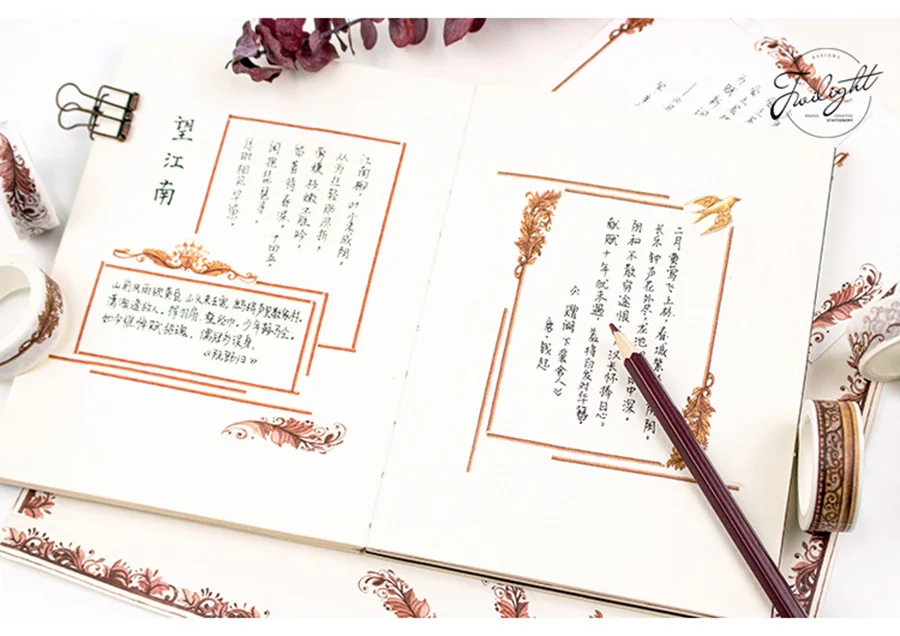 望江南
江南柳,叶小未成阴,
人为丝轻那忍折,
莺嫌枝嫩不胜吟,
留着待春深。十四五,
闲抱琵琶寻。
恁时相见早
山前风雨欲黄昏,山头来去云,鹧鸪声里数家村,
潇湘逢故人。挥羽扇,整纶巾,少年鞍马尘。
如今憔悴赋招魂,儒冠多误身。
《阮郎归》
二月黄莺飞上林,春城紫 阴阴,
长乐钟声花外尽,龙池 雨中深,
阳和不散穷途恨, 汉长怀捧日心。
献赋十年犹未遇,羞将白发对华簪。
《赠阙下裴舍人》
唐·钱起
DESIGNS
Twilight
BRAND CREATIVE
STATIONERY